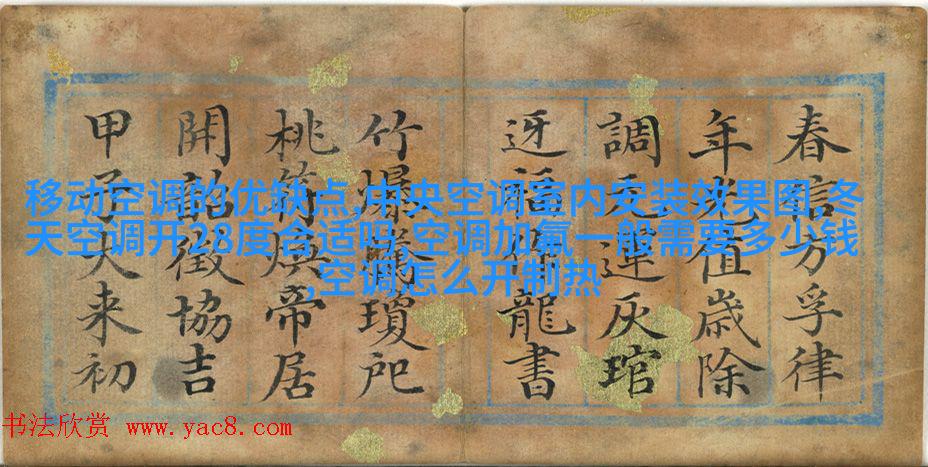 春信方孚律
年光值歲除
調元運灰琯
迓福龍書
竹爆瓊
桃符煥帝居
開韶徵協吉
甲子大来初
移动空调的优缺点,中央空调室内安装效果图,冬
天空调开28度合适吗,空调加氟一般需要多少钱
,空调怎么开制热
书法欣赏 www.yac8.com